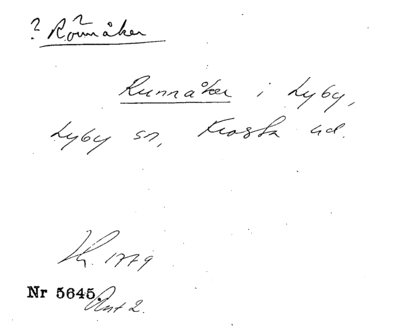 ? Rönnåker
Runnåker i Lyby,
Lyby sn, Frosta hd.
1779
Nr 5645.